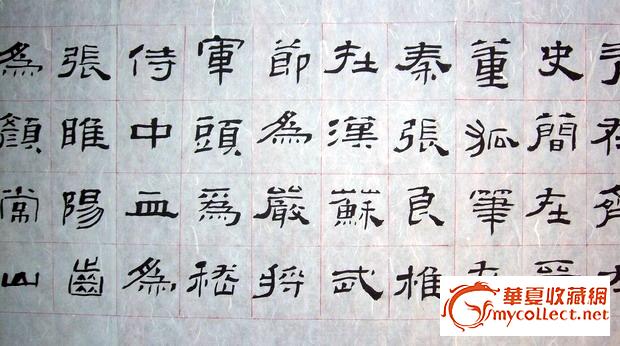 史簡在晉
董狐筆在
秦張良椎
在漢蘇武
節為嚴將
軍頭爲嵇
侍中血為
張睢陽齒
為顔常山
華夏收藏網
mycollect.net